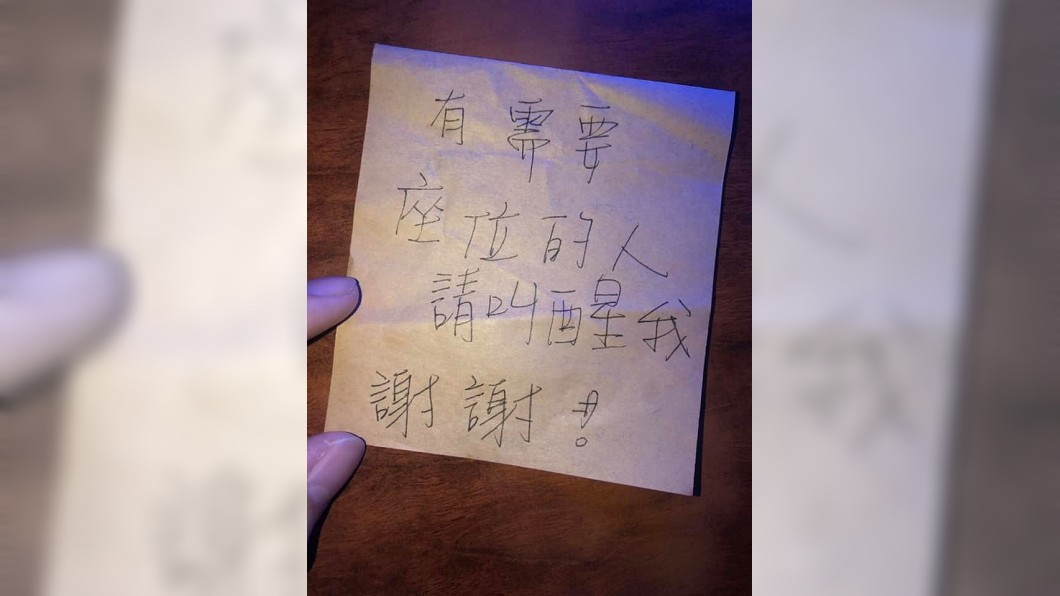 有需要
座位的人
請叫醒我
謝謝!